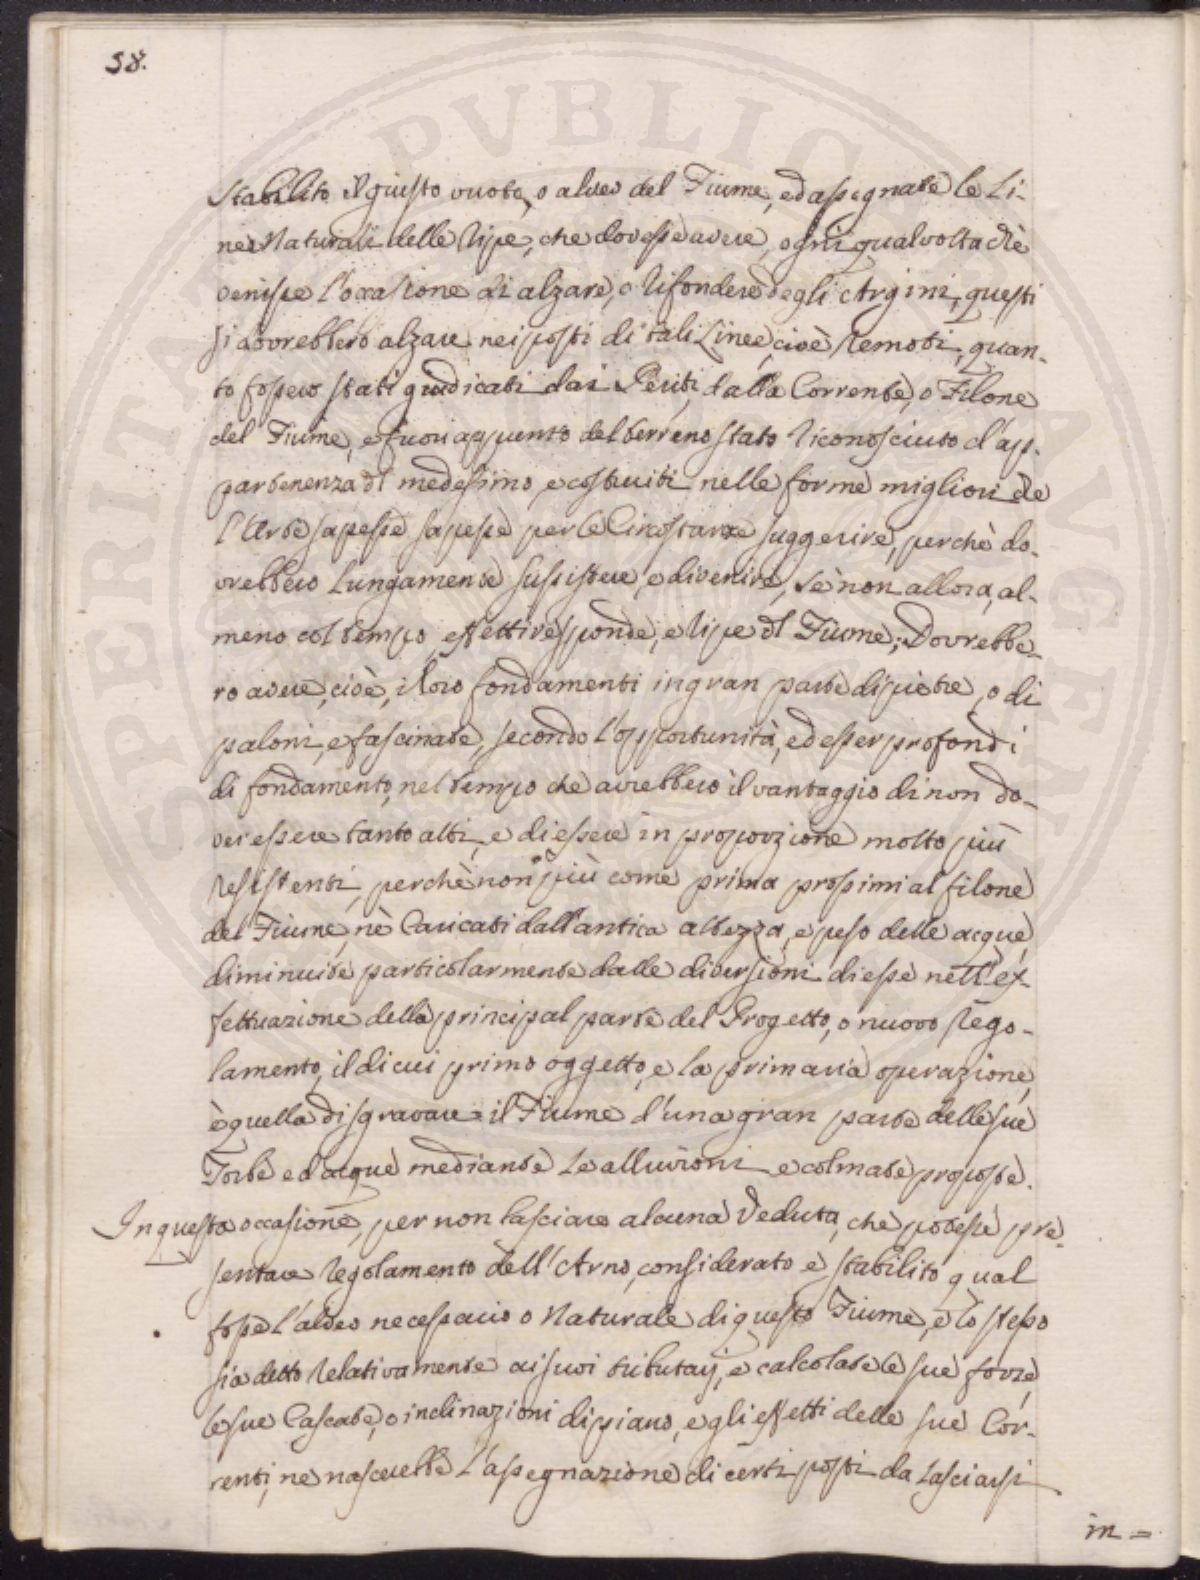 58.
Stabilito il giusto vuoto, o alveo del Fiume, ed assegnate le Li-
nee Naturali delle Ripe, che dovesse avere, ogni qual volta che
venisse l'occasione di alzare, o rifondere degli Argini, questi
si dovrebbero alzare nei posti di tali Linee, cioè remoti, quan-
to fossero stati giudicati dai Periti dalla Corrente, o Filone
del Fiume, e fuori appunto del terreno stato riconosciuto d'ap-
partenenza dl medesimo, e costruiti nelle forme migliori che
l'Arte sapesse sapesse per le Circostanze suggerire, perchè do-
vrebbero lungamente sussistere, e divenire, se non allora, al-
meno col tempo, effettive sponde, e ripe dl Fiume; Dovrebbe-
ro avere, cioè, i loro fondamenti in gran parte di pietre, o di
paloni, e fascinate, secondo l'opportunità, ed esser profondi
di fondamento, nel tempo che avrebbero il vantaggio di non do-
ver essere tanto alti, e di essere in proporzione molto più
resistenti, perchè non più come prima prossimi al filone
del Fiume, nè Caricati dall'antica altezza, e peso delle acque,
diminuite particolarmente dalle diversioni di esse nell'ef-
fettuazione della principal parte del Progetto, o nuovo Rego-
lamento, il di cui primo oggetto, e la primaria operazione,
è quella di sgravare il Fiume d'una gran parte delle sue
Torbe ed acque mediante le alluvioni e colmate proposte.
In questa occasione, per non lasciare alcuna Veduta, che potesse pre-
sentare regolamento dell'Arno, considerato e stabilito qual
fosse l'alveo necessario o Naturale di questo Fiume, e lo stesso
sia detto relativamente ai suoi tributarj, e calcolate le sue forze,
le sue Cascate, o inclinazioni di piano, e gli effetti delle sue Cor-
renti, ne nascerebbe l'assegnazione di certi posti da lasciarsi
in =
SPERITAT PVBLICA AVGE